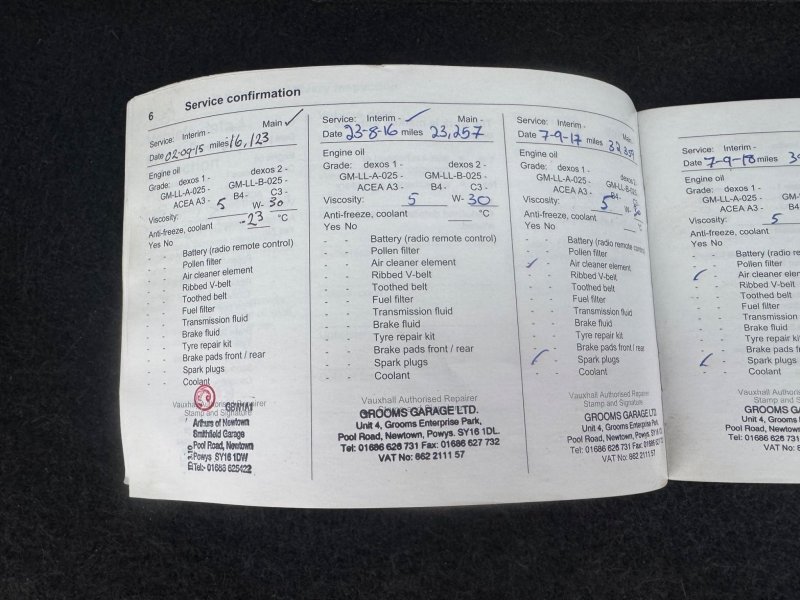 6 Service confirmation
Service: Interim - Main - ✓
Date 02-09-15 miles 16,123
Engine oil
Grade: dexos 1 - dexos 2 -
GM-LL-A-025 - GM-LL-B-025 -
ACEA A3 - B4- C3 -
Viscosity: 5 W- 30
Anti-freeze, coolant -23 °C
Yes No
- - Battery (radio remote control)
- - Pollen filter
- - Air cleaner element
- - Ribbed V-belt
- - Toothed belt
- - Fuel filter
- - Transmission fluid
- - Brake fluid
- - Tyre repair kit
- - Brake pads front / rear
- - Spark plugs
- - Coolant
Vauxhall Authorised Repairer
Stamp and Signature
Arthurs of Newtown
Smithfield Garage
Pool Road, Newtown
Powys SY16 1DW
Tel:- 01686 625422
Service: Interim - ✓ Main -
Date 23-8-16 miles 23,257
Engine oil
Grade: dexos 1 - dexos 2 -
GM-LL-A-025 - GM-LL-B-025 -
ACEA A3 - B4- C3 -
Viscosity: 5 W- 30
Anti-freeze, coolant °C
Yes No
- - Battery (radio remote control)
- - Pollen filter
- - Air cleaner element
- - Ribbed V-belt
- - Toothed belt
- - Fuel filter
- - Transmission fluid
- - Brake fluid
- - Tyre repair kit
- - Brake pads front / rear
- - Spark plugs
- - Coolant
Vauxhall Authorised Repairer
GROOMS GARAGE LTD.
Unit 4, Grooms Enterprise Park,
Pool Road, Newtown, Powys. SY16 1DL.
Tel: 01686 626 731 Fax: 01686 627 732
VAT No: 862 2111 57
Service: Interim - Main -
Date 7-9-17 miles
Engine oil
Grade: dexos 1 - dexos 2 -
GM-LL-A-025 - GM-LL-B-025 -
ACEA A3 - B4- C3 -
Viscosity: 5 W- 30
Anti-freeze, coolant °C
Yes No
- - Battery (radio remote control)
- - Pollen filter
✓ - Air cleaner element
- - Ribbed V-belt
- - Toothed belt
- - Fuel filter
- - Transmission fluid
- - Brake fluid
- - Tyre repair kit
- - Brake pads front / rear
✓ - Spark plugs
- - Coolant
Vauxhall Authorised Repairer
Stamp and Signature
GROOMS GARAGE LTD.
Unit 4, Grooms Enterprise Park,
Pool Road, Newtown, Powys.
Tel: 01686 626 731 Fax: 01686
VAT No: 862 2111 57
Service: Interim -
Date 7-9-18 miles
Engine oil
Grade: dexos 1 -
GM-LL-A-025 -
ACEA A3 -
Viscosity: 5
Anti-freeze, coolant
Yes No
- - Battery (radio re
- - Pollen filter
✓ - Air cleaner elem
- - Ribbed V-belt
- - Toothed belt
- - Fuel filter
- - Transmission
- - Brake fluid
- - Tyre repair kit
- - Brake pads fro
✓ - Spark plugs
- - Coolant
Vauxhall Auth
Stamp a
GROOMS G
Unit 4, Grooms
Pool Road, Newto
Tel: 01686 626 731
VAT No: 8